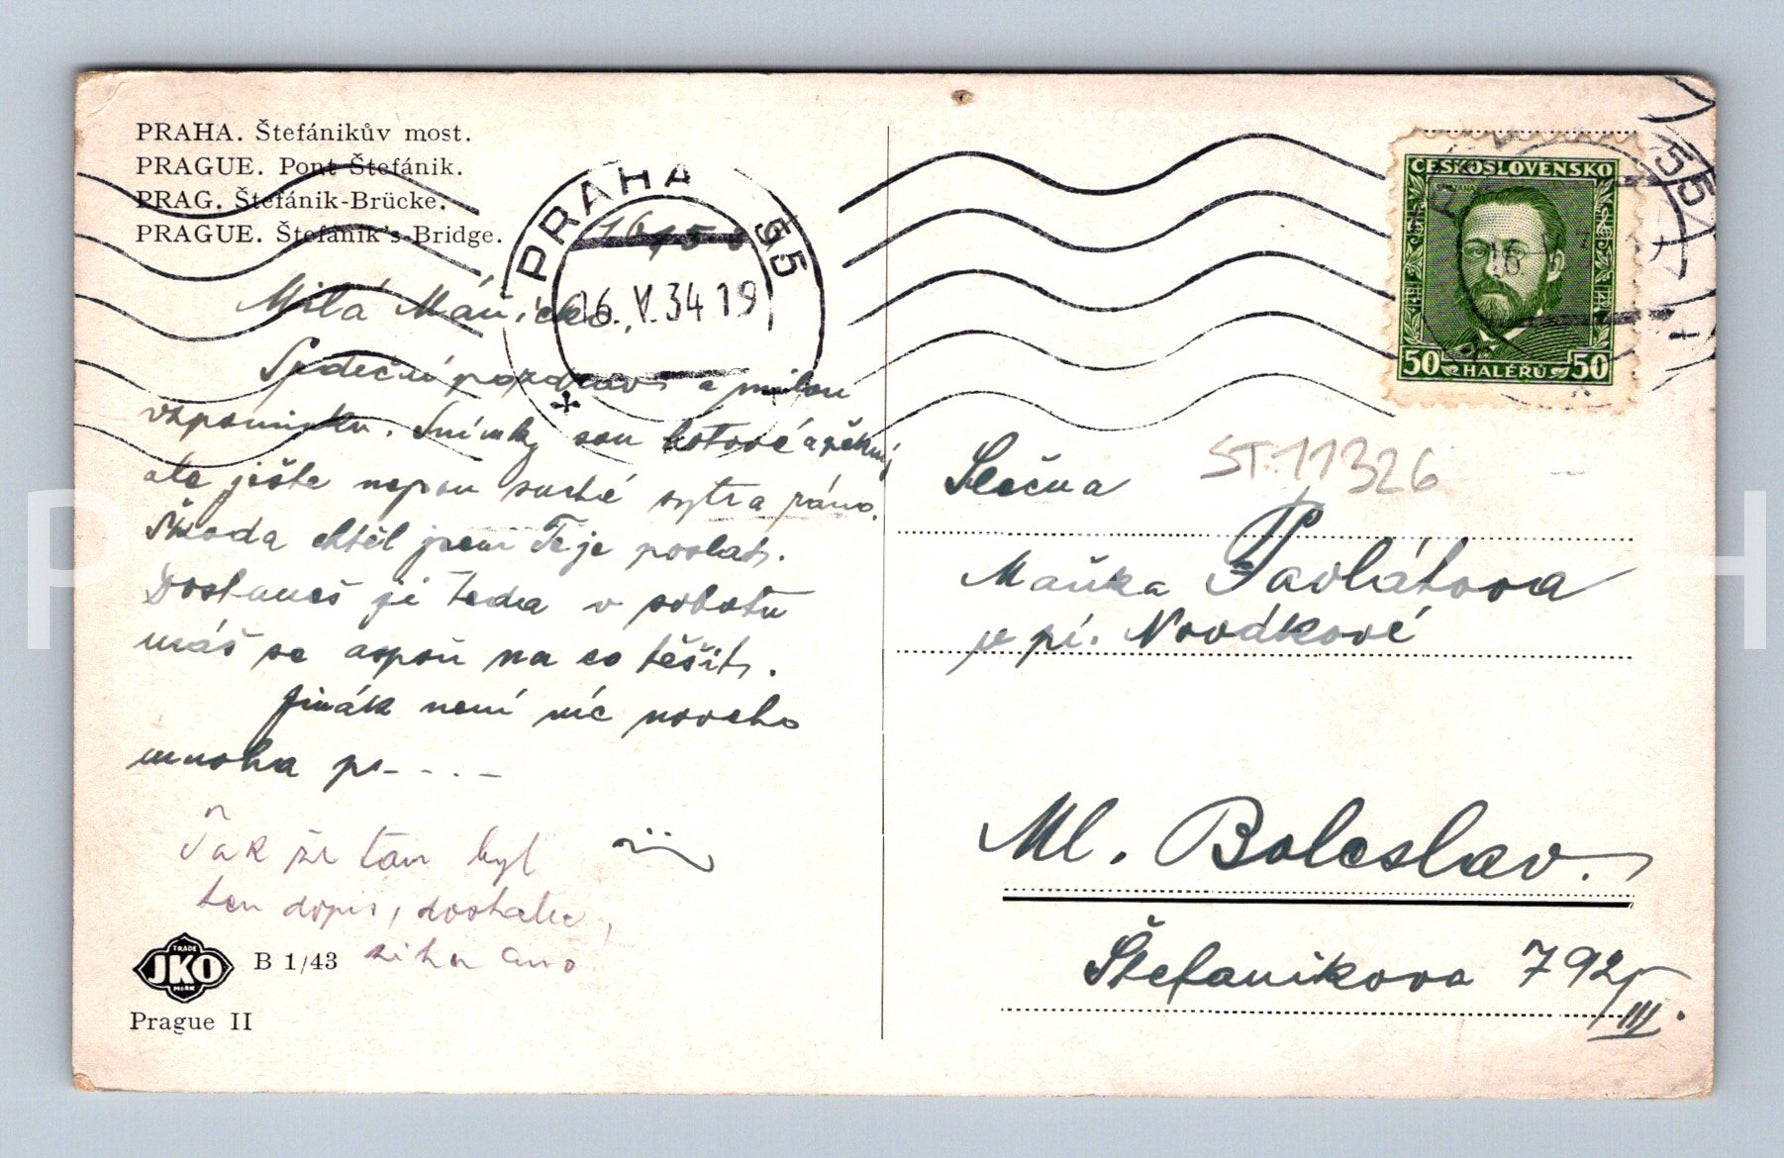 PRAHA. Štefánikův most.
PRAGUE. Pont Štefánik.
PRAG. Štefánik-Brücke.
PRAGUE. Štefánik's Bridge.
PRAHA 55
16. V. 34 19
ČESKOSLOVENSKO
50 HALÉRŮ 50
Milá Máničko,
Srdečný pozdrav a milou
vzpomínku. Snímky sou hotové a pěkný
ale ještě nejsou suché zytra ráno.
Škoda chtěl jsem Ti je poslat.
Dostaneš je teda v sobotu
máš se aspoň na co těšit.
Jinák není nic noveho
mnoha p-....
Tak že tam byl
ten dopis,
ano
JKO
TRADE
MARK
B 1/43
Prague II
ST 11326
Slečna
Maňka Pavlátova
u pí. Novákové
Ml. Boleslav.
Štefanikova 792
III.